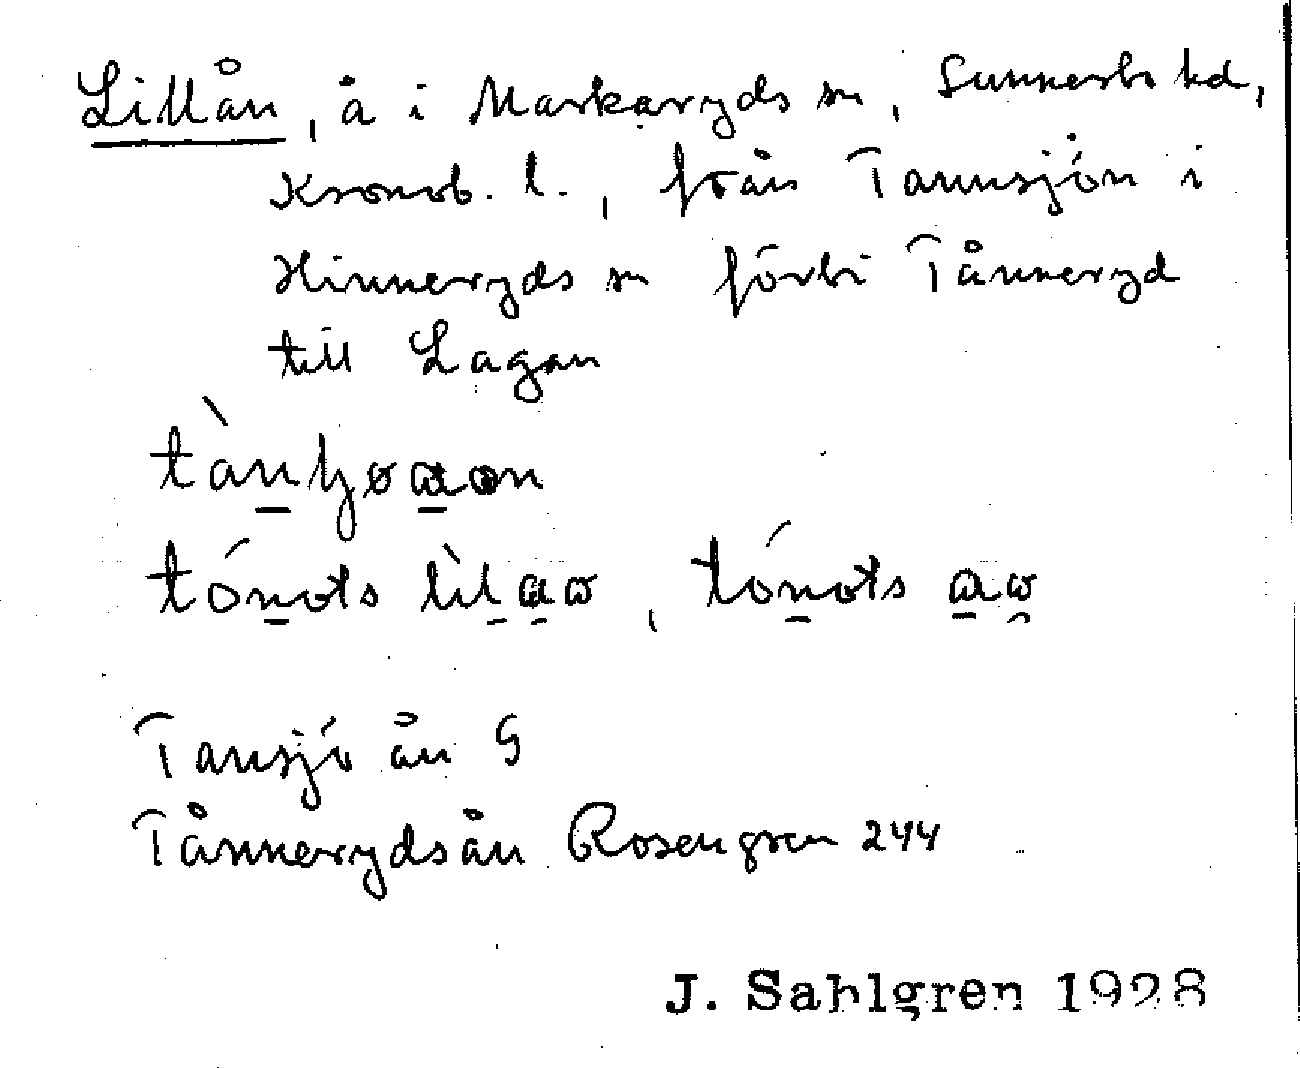 Lillån, å i Markaryds sn, Sunnerbo hd,
Kronob. l., från Tannsjön i
Hinneryds sn förbi Tånneryd
till Lagan
tónots
tónots
Tansjö ån G
Tånnerydsån Rosengren 244
J. Sahlgren 1928